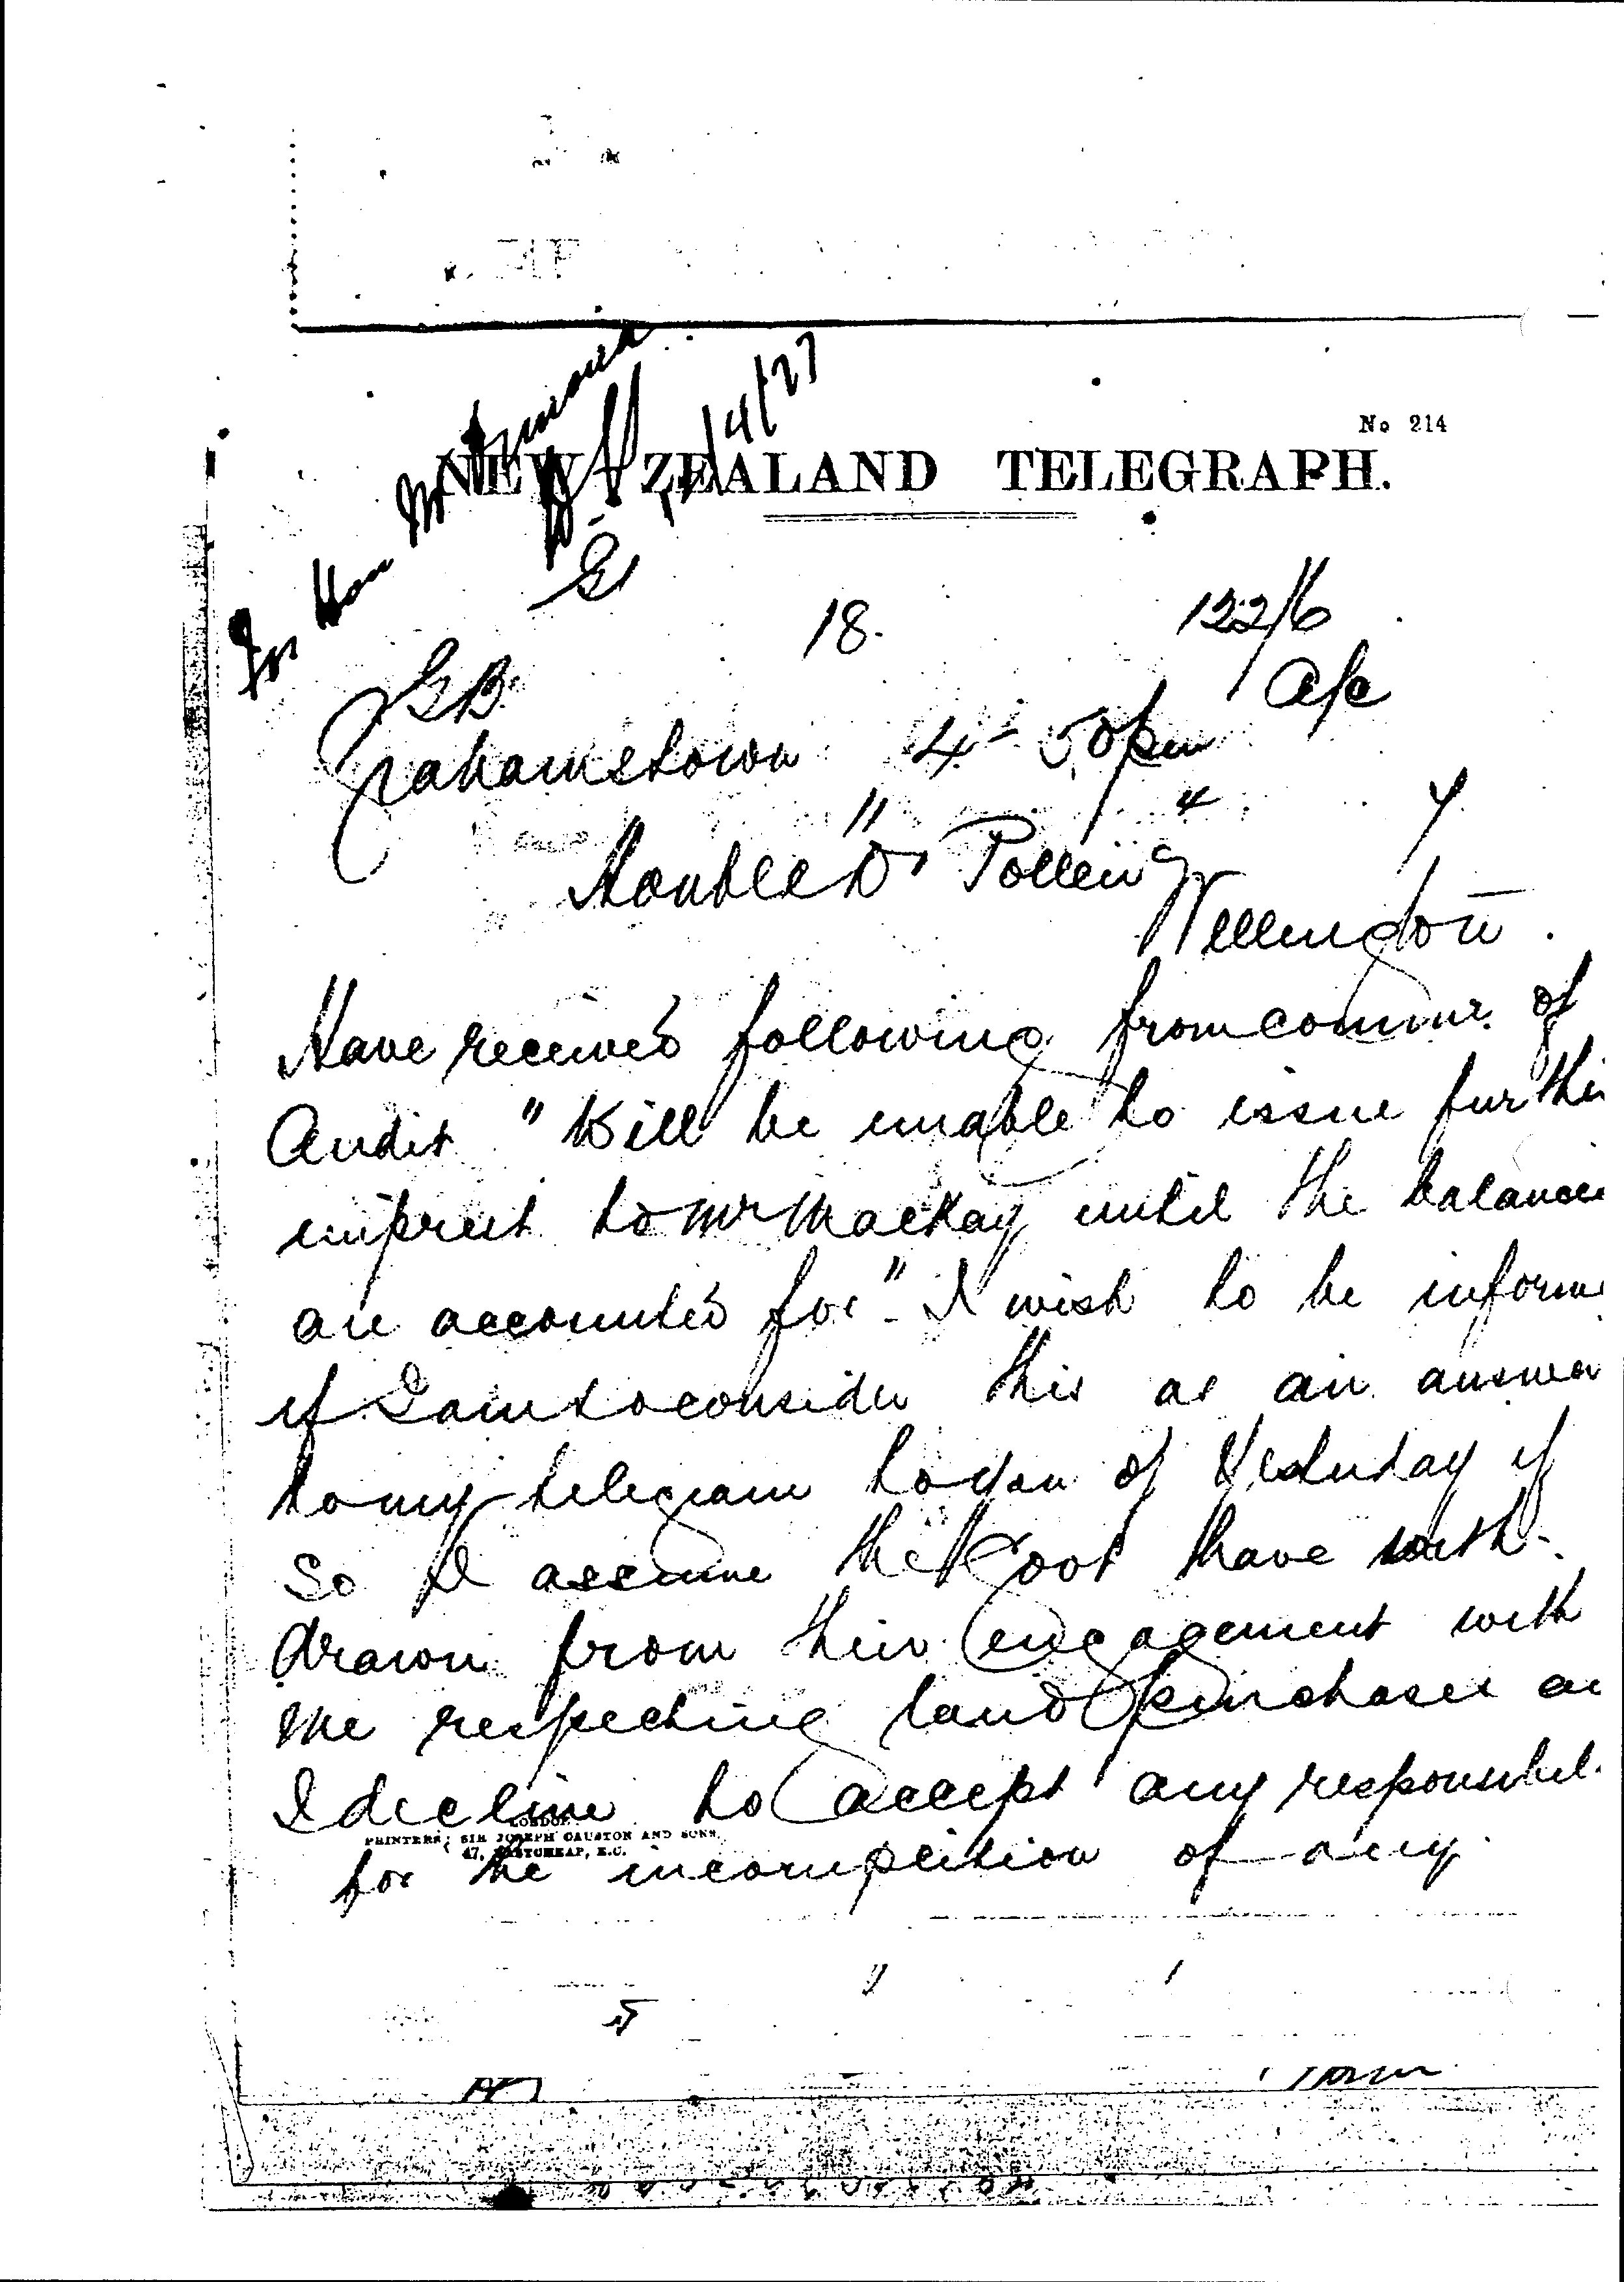 No 214
NEW ZEALAND TELEGRAPH.
For Hon
18. 122/6
GB a/c
Grahamstown 4-50pm
11 4 7
Honble Dr Pollen
Wellington.
Have received following from commr. of
Audit "Will be unable to issue furthe
imprest to Mr Mackay until the balances
are accounted for". I wish to be informe
if I am to consider this as an answer
to my telegram to you of Wednesday if
so I assume the Govt have with-
drawn from their engagement with
me respecting land purchases an
I decline to accept any responsibil
for the incompletion of any
LONDON:
PRINTERS; SIR JOSEPH CAUSTON AND SONS,
47, EASTCHEAP, E.C.